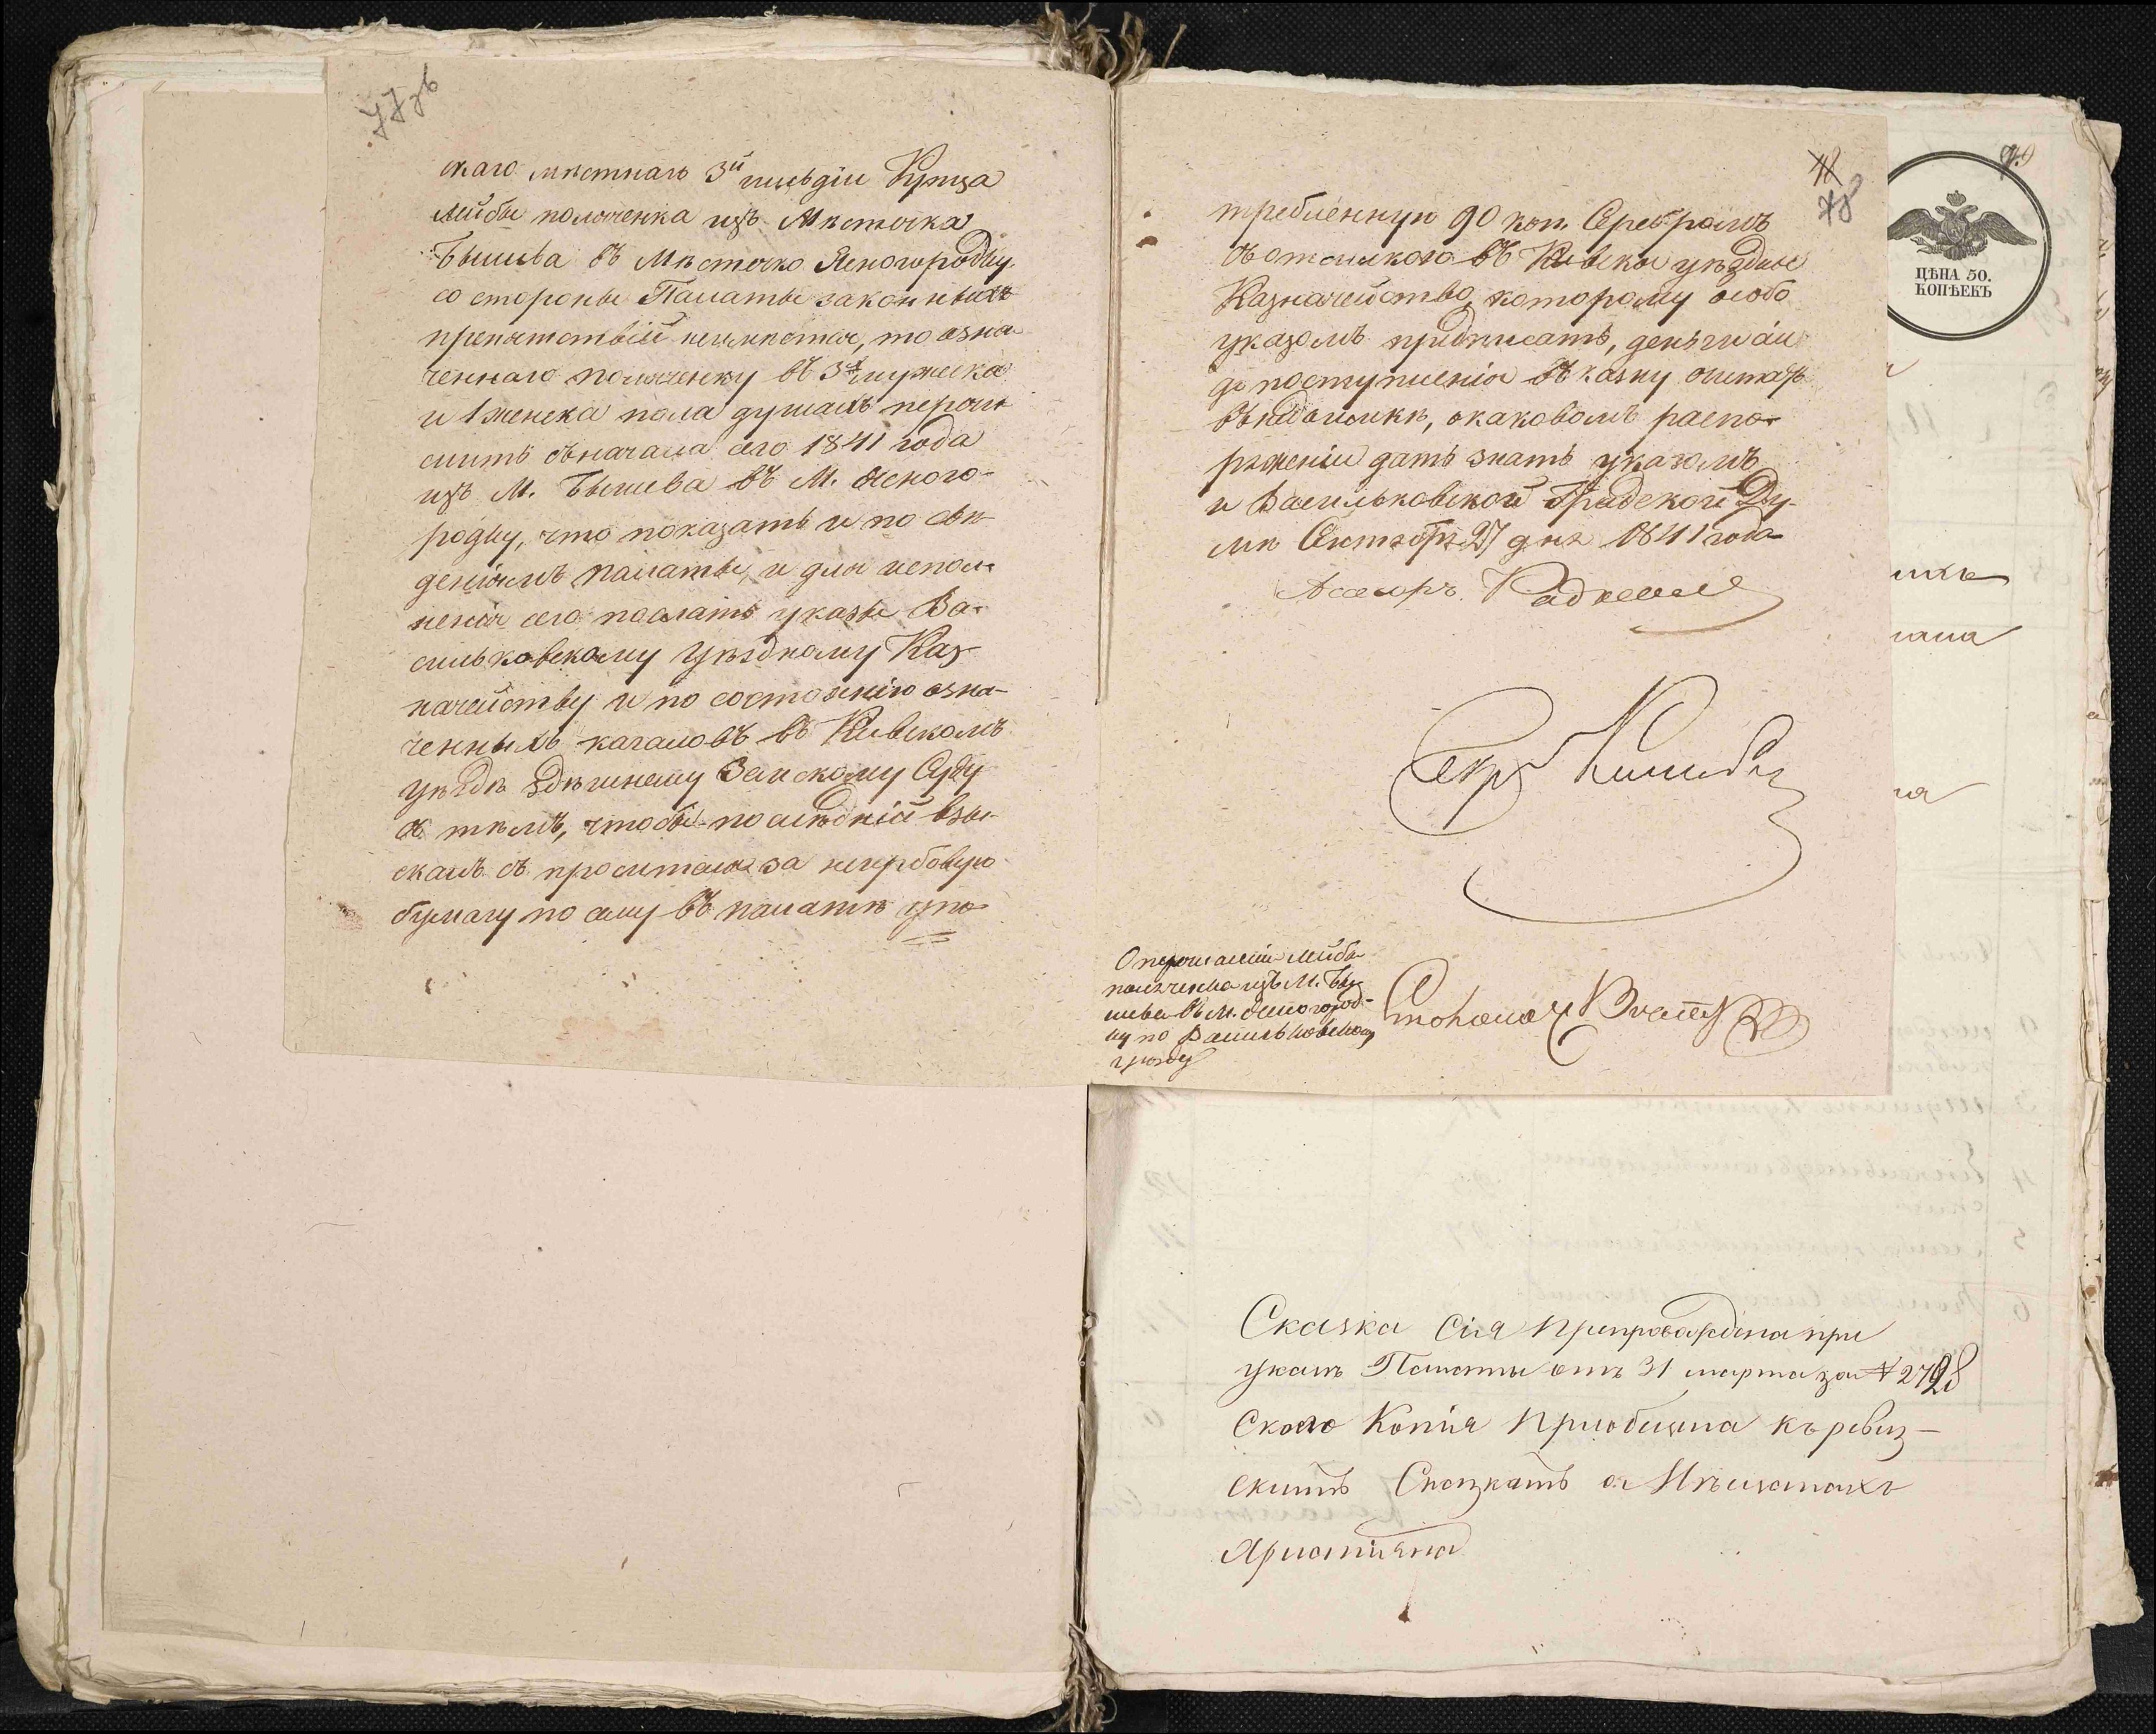 77 об
скаго мѣстнаго 3й гильдіи Купца
Лейбы Полоченка изъ Мѣстечка
Бышева въ Мѣстечко Ясногородку
со стороны Палаты законныхъ
препятствій неимѣется, то озна
ченнаго Полоченку въ 3х мужеска
и 1 женска пола душахъ перечи
слить съначала сего 1841 года
изъ М. Бышева въ М. Ясного-
родку, что показать и по свѣ
деніямъ палаты, и для испол
ненія сего послать указы Ва-
сильковскому Уѣздному Каз
начейству и по состоянію озна-
ченныхъ кагаловъ въ Кіевскомъ
уѣздѣ здѣшнему Земскому Суду
съ тѣмъ, чтобы послѣдній взы-
скалъ съ просителя за негербовую
бумагу по сему въ палатѣ упо
78
требленную 90 коп. Серебромъ
съ отсылкою въ Кіевское уѣздное
Казначейство, которому особо
указомъ предписать, деньги сіи
до поступленія въ казну считать
въ недоимкѣ, о каковомъ распо-
ряженіи дать знать указомъ
и Васильковской Градской Ду-
мѣ Сентября 27 дня 1841 года
Асесоръ
Секр
О перечисленіи Лейбы
Полоченка изъ М. Бы
шева въ М. Ясногород-
ку по Васильковскому
уѣзду
Столонач
ЦѢНА 50.
КОПѢЕКЪ
Сказка сія препровождена при
указѣ Палаты отъ 31 марта за № 2798
Скоего Копія Пріобщена къ ревиз-
скимъ Сказкамъ о Мѣщанахъ
Христіяна